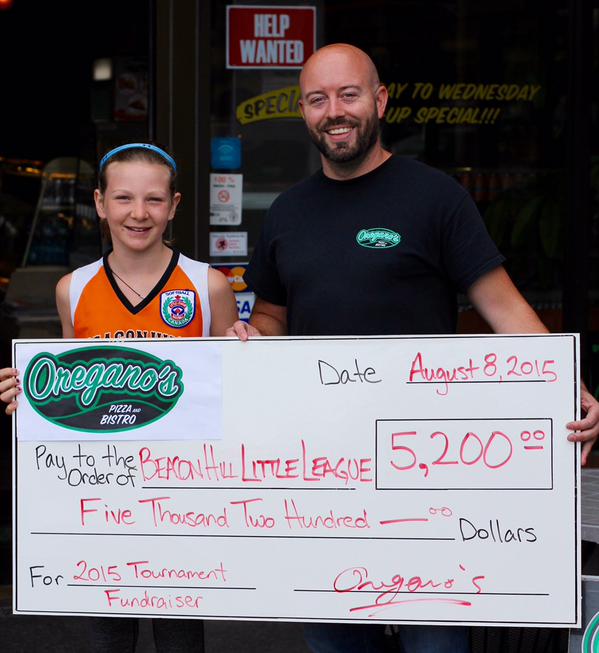 HELP
WANTED
SPECIAL
AY TO WEDNESDAY
UP SPECIAL!!!
100%
Onegano's
SOFTBALL
CANADA
BEACON HILL
VISA
Onegano's
PIZZA AND
BISTRO
Date August 8, 2015
Pay to the
Order of BEACON HILL LITTLE LEAGUE 5,200.00
Five Thousand Two Hundred — 00 Dollars
For 2015 Tournament Onegano's
Fundraiser